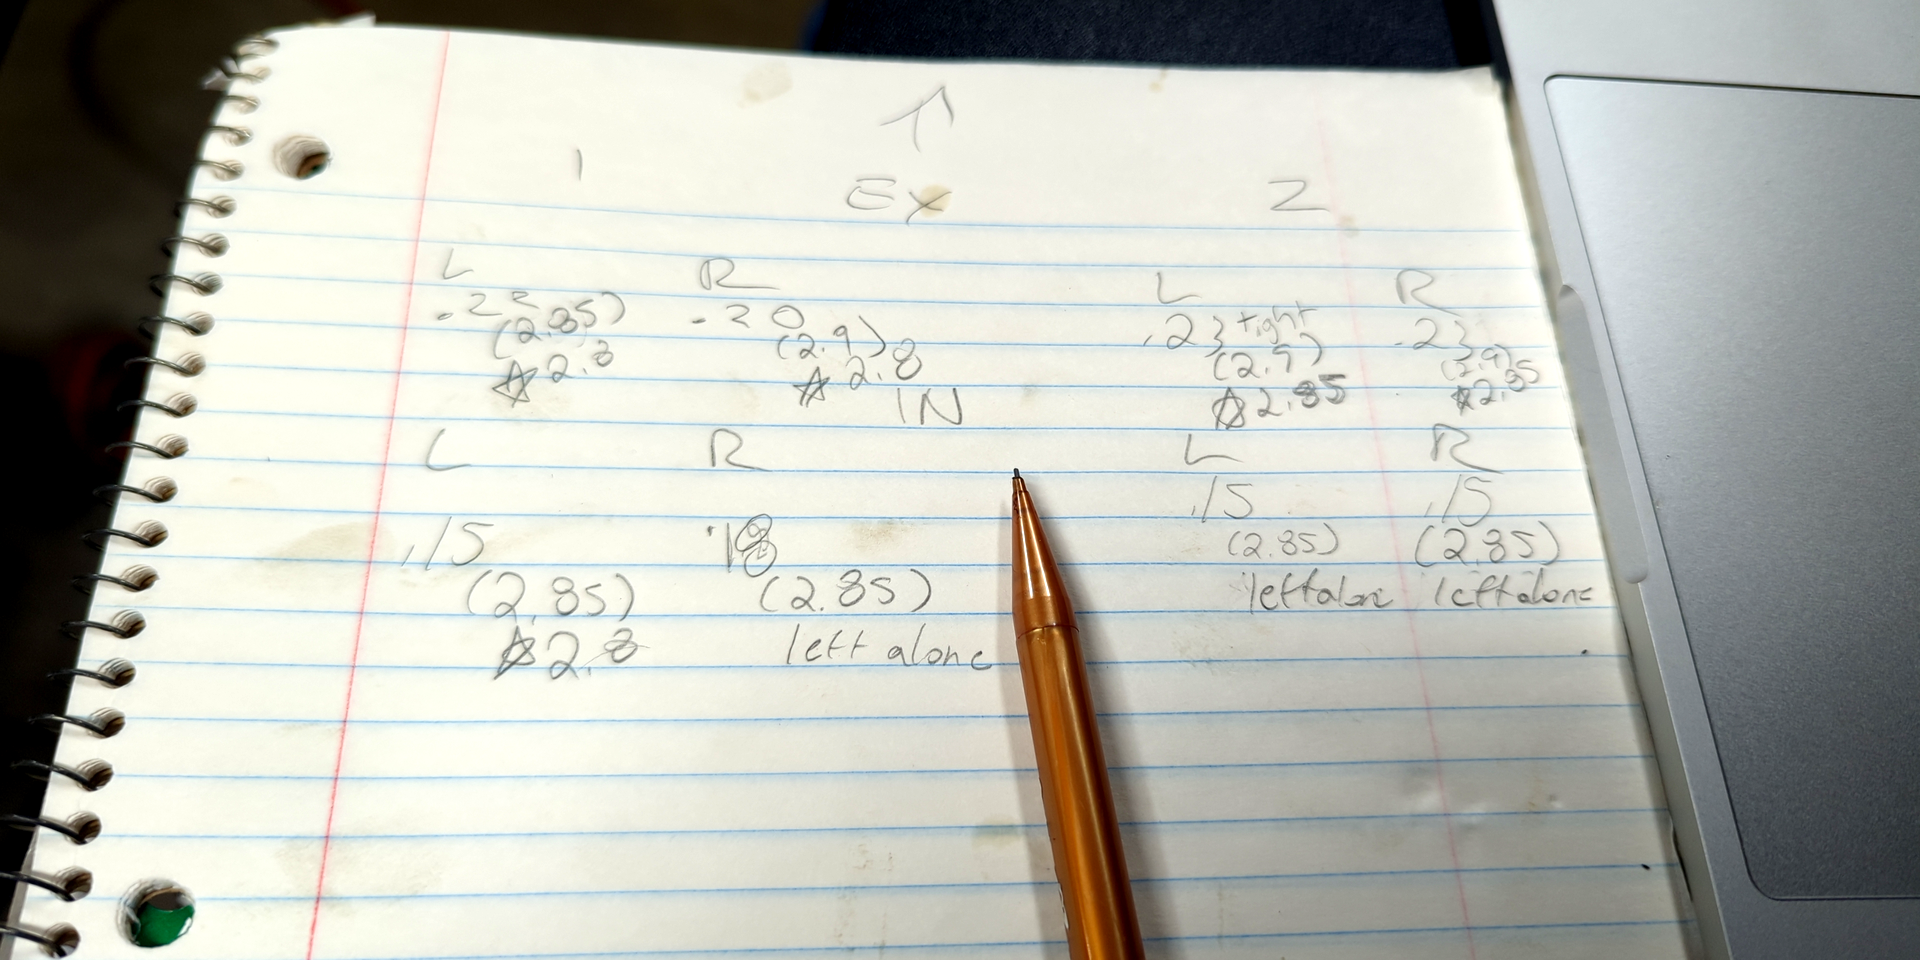 ↑
1 EX 2
L R L R
.22 .20 .23 tight .23
(2.85) (2.9) (2.9) (2.9)
☆ 2.8 ☆ 2.8 ☆ 2.85 ☆ 2.85
IN
L R L R
.15 .18 .15 .15
(2.85) (2.85) (2.85) (2.85)
☆ 2.8 left alone left alone left alone